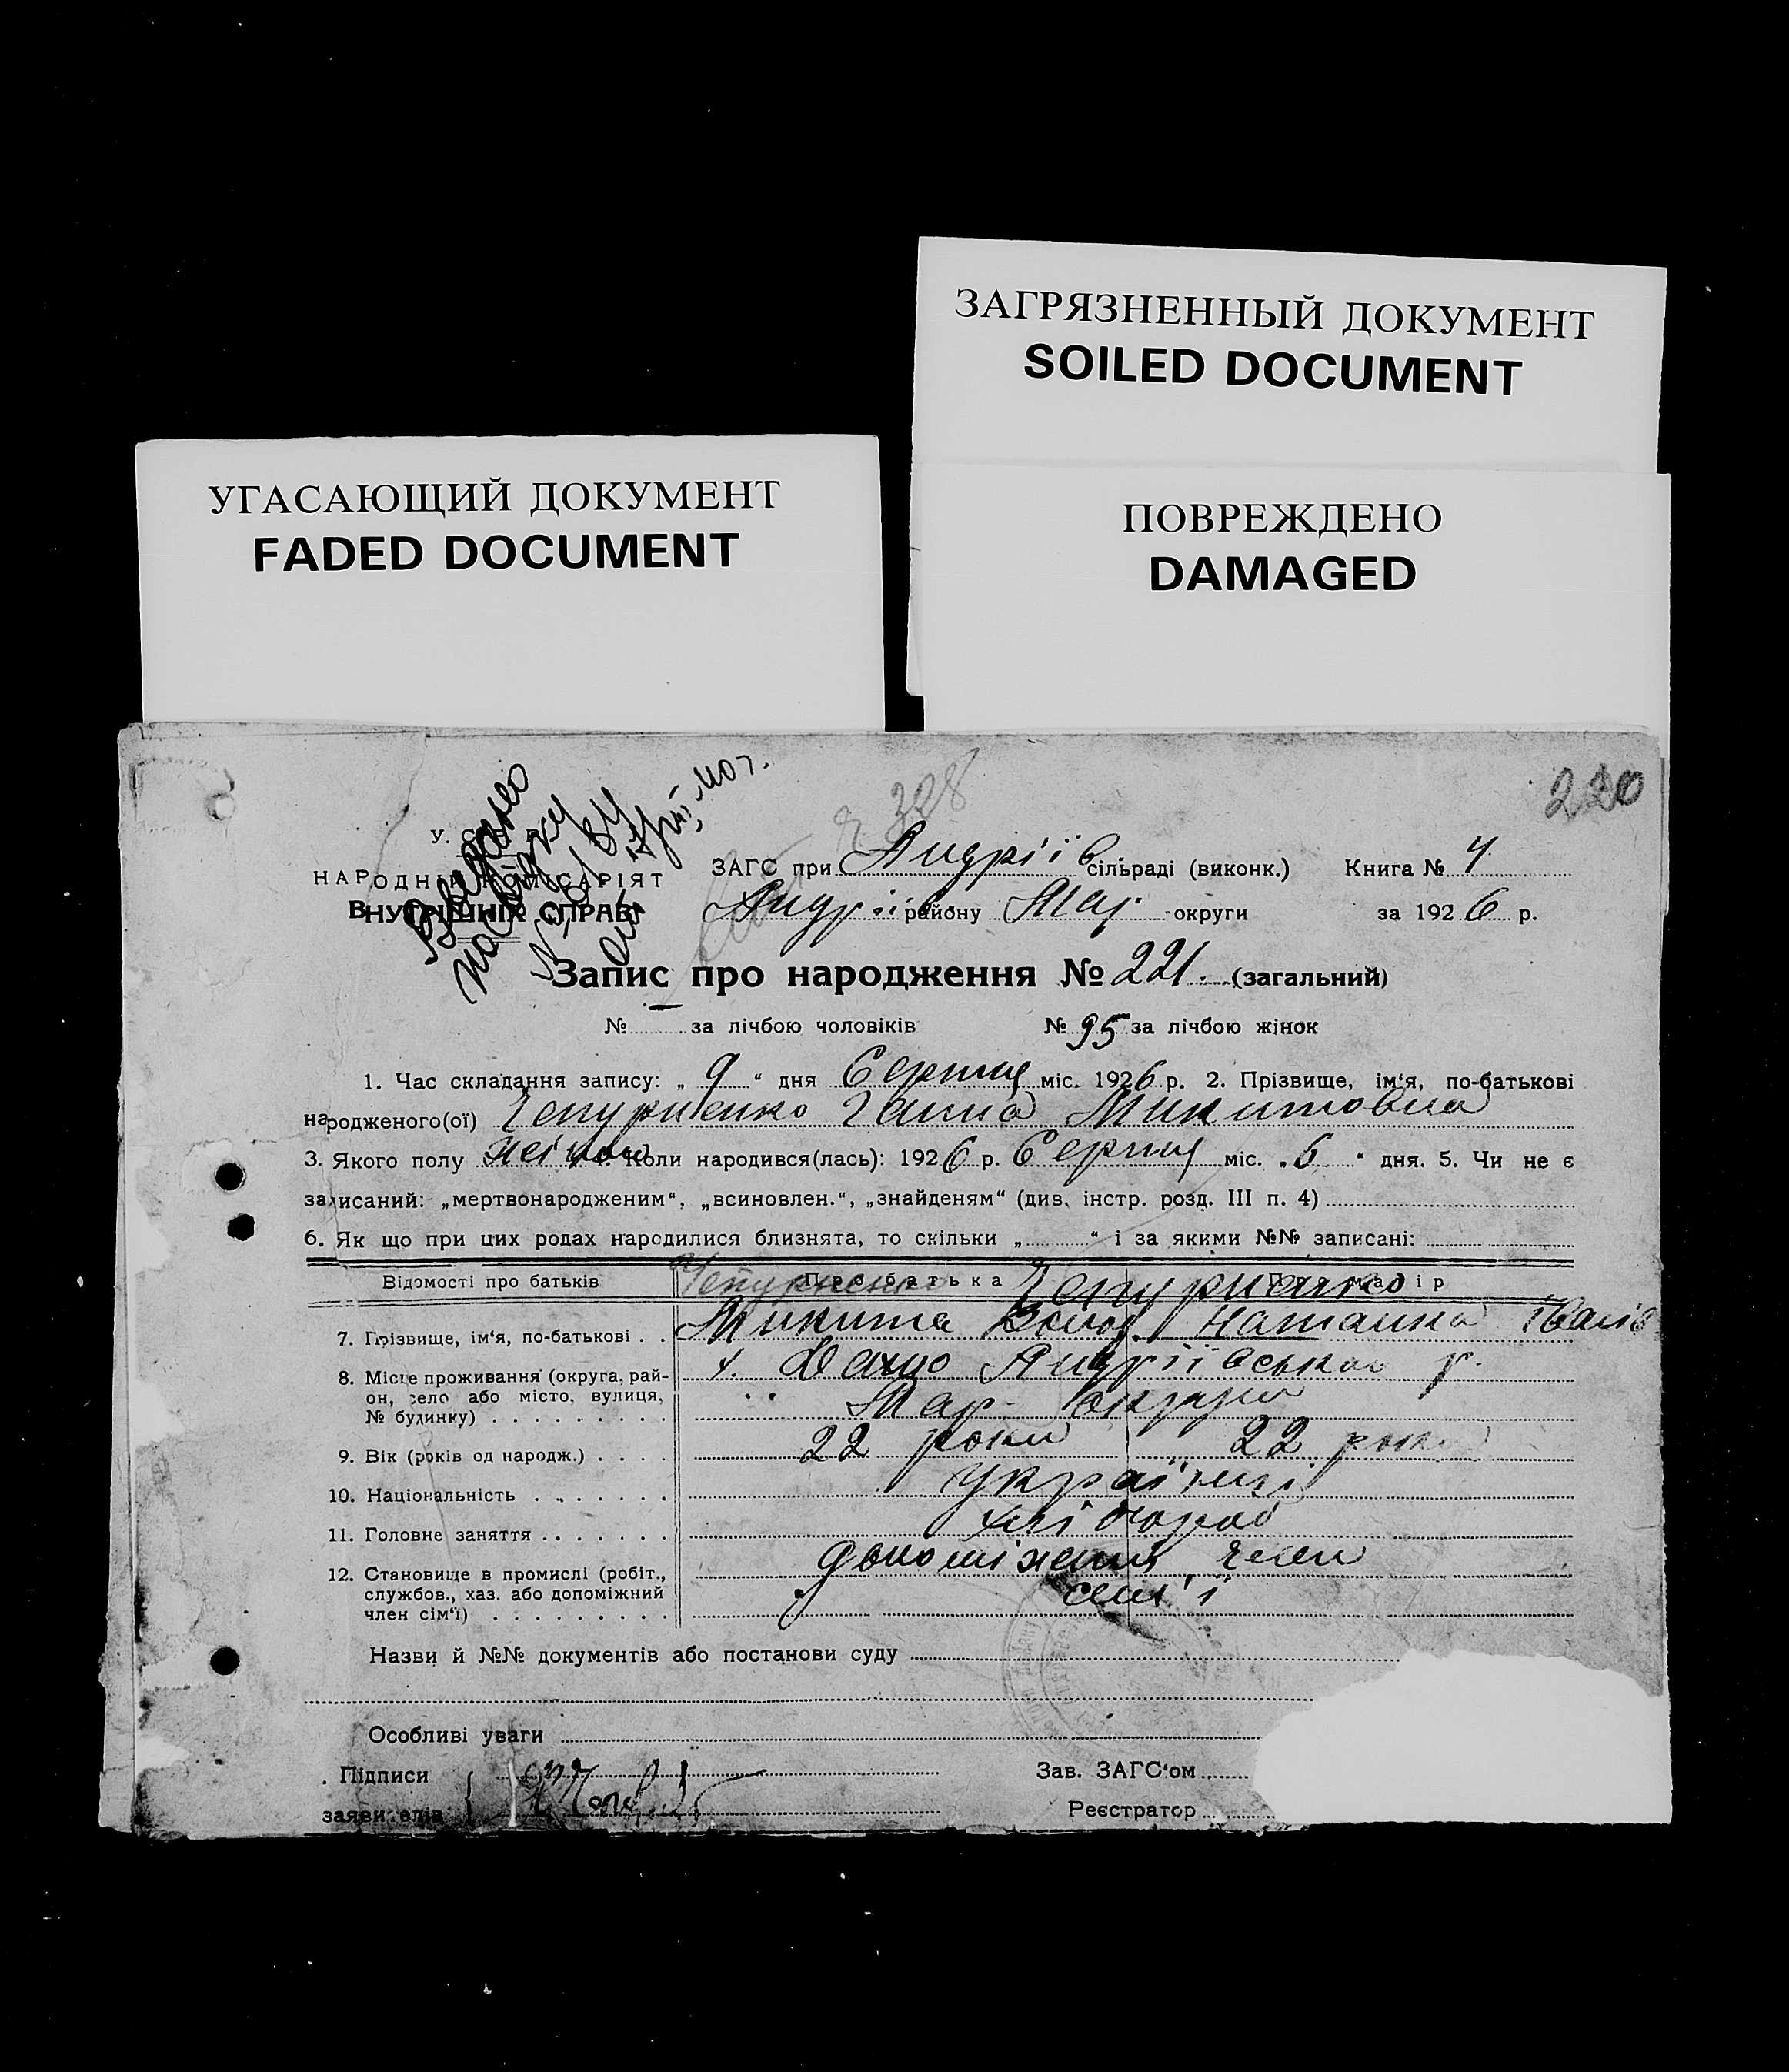 ЗАГРЯЗНЕННЫЙ ДОКУМЕНТ
SOILED DOCUMENT
УГАСАЮЩИЙ ДОКУМЕНТ
FADED DOCUMENT
ПОВРЕЖДЕНО
DAMAGED
220
328
НАРОДНІЙ КОМІСАРІЯТ
ВНУТРІШНІХ СПРАВ
ЗАГС при Андріїв. сільраді (виконк.) Книга № 4
Андріїв. району Мар. округи за 1926 р.
Запис про народження № 221. (загальний)
№ — за лічбою чоловіків № 95 за лічбою жінок
1. Час складання запису: „ 9 “ дня Серпня міс. 1926 р. 2. Прізвище, ім‘я, по-батькові
народженого(ої) Чепурненко Ганна Микитовна
3. Якого полу жіноч 4. Коли народився(лась): 1926 р. Серпня міс. „ 6 “ дня. 5. Чи не є
записаний: „мертвонародженим“, „всиновлен.“, „знайденям“ (див. інстр. розд. III п. 4)
6. Як що при цих родах народилися близнята, то скільки „ “ і за якими №№ записані:
Відомості про батьків Про батька Про матір
Чепурненко Чепурненко
7. Прізвище, ім‘я, по-батькові . . Микита Наталка Іванів
8. Місце проживання (округа, рай- Андріївськоо р.
он, село або місто, вулиця, Мар. округи
№ будинку) . . . . . . . . .
9. Вік (років од народж.) . . . . 22 роки 22 роки
10. Національність . . . . . . . українці
11. Головне заняття . . . . . . . хлібороб
12. Становище в промислі (робіт., допоміжний член
службов., хаз. або допоміжний сем'ї
член сім‘ї) . . . . . . . . .
Назви й №№ документів або постанови суду
Особливі уваги
Підписи Зав. ЗАГС‘ом
заявителів Реєстратор